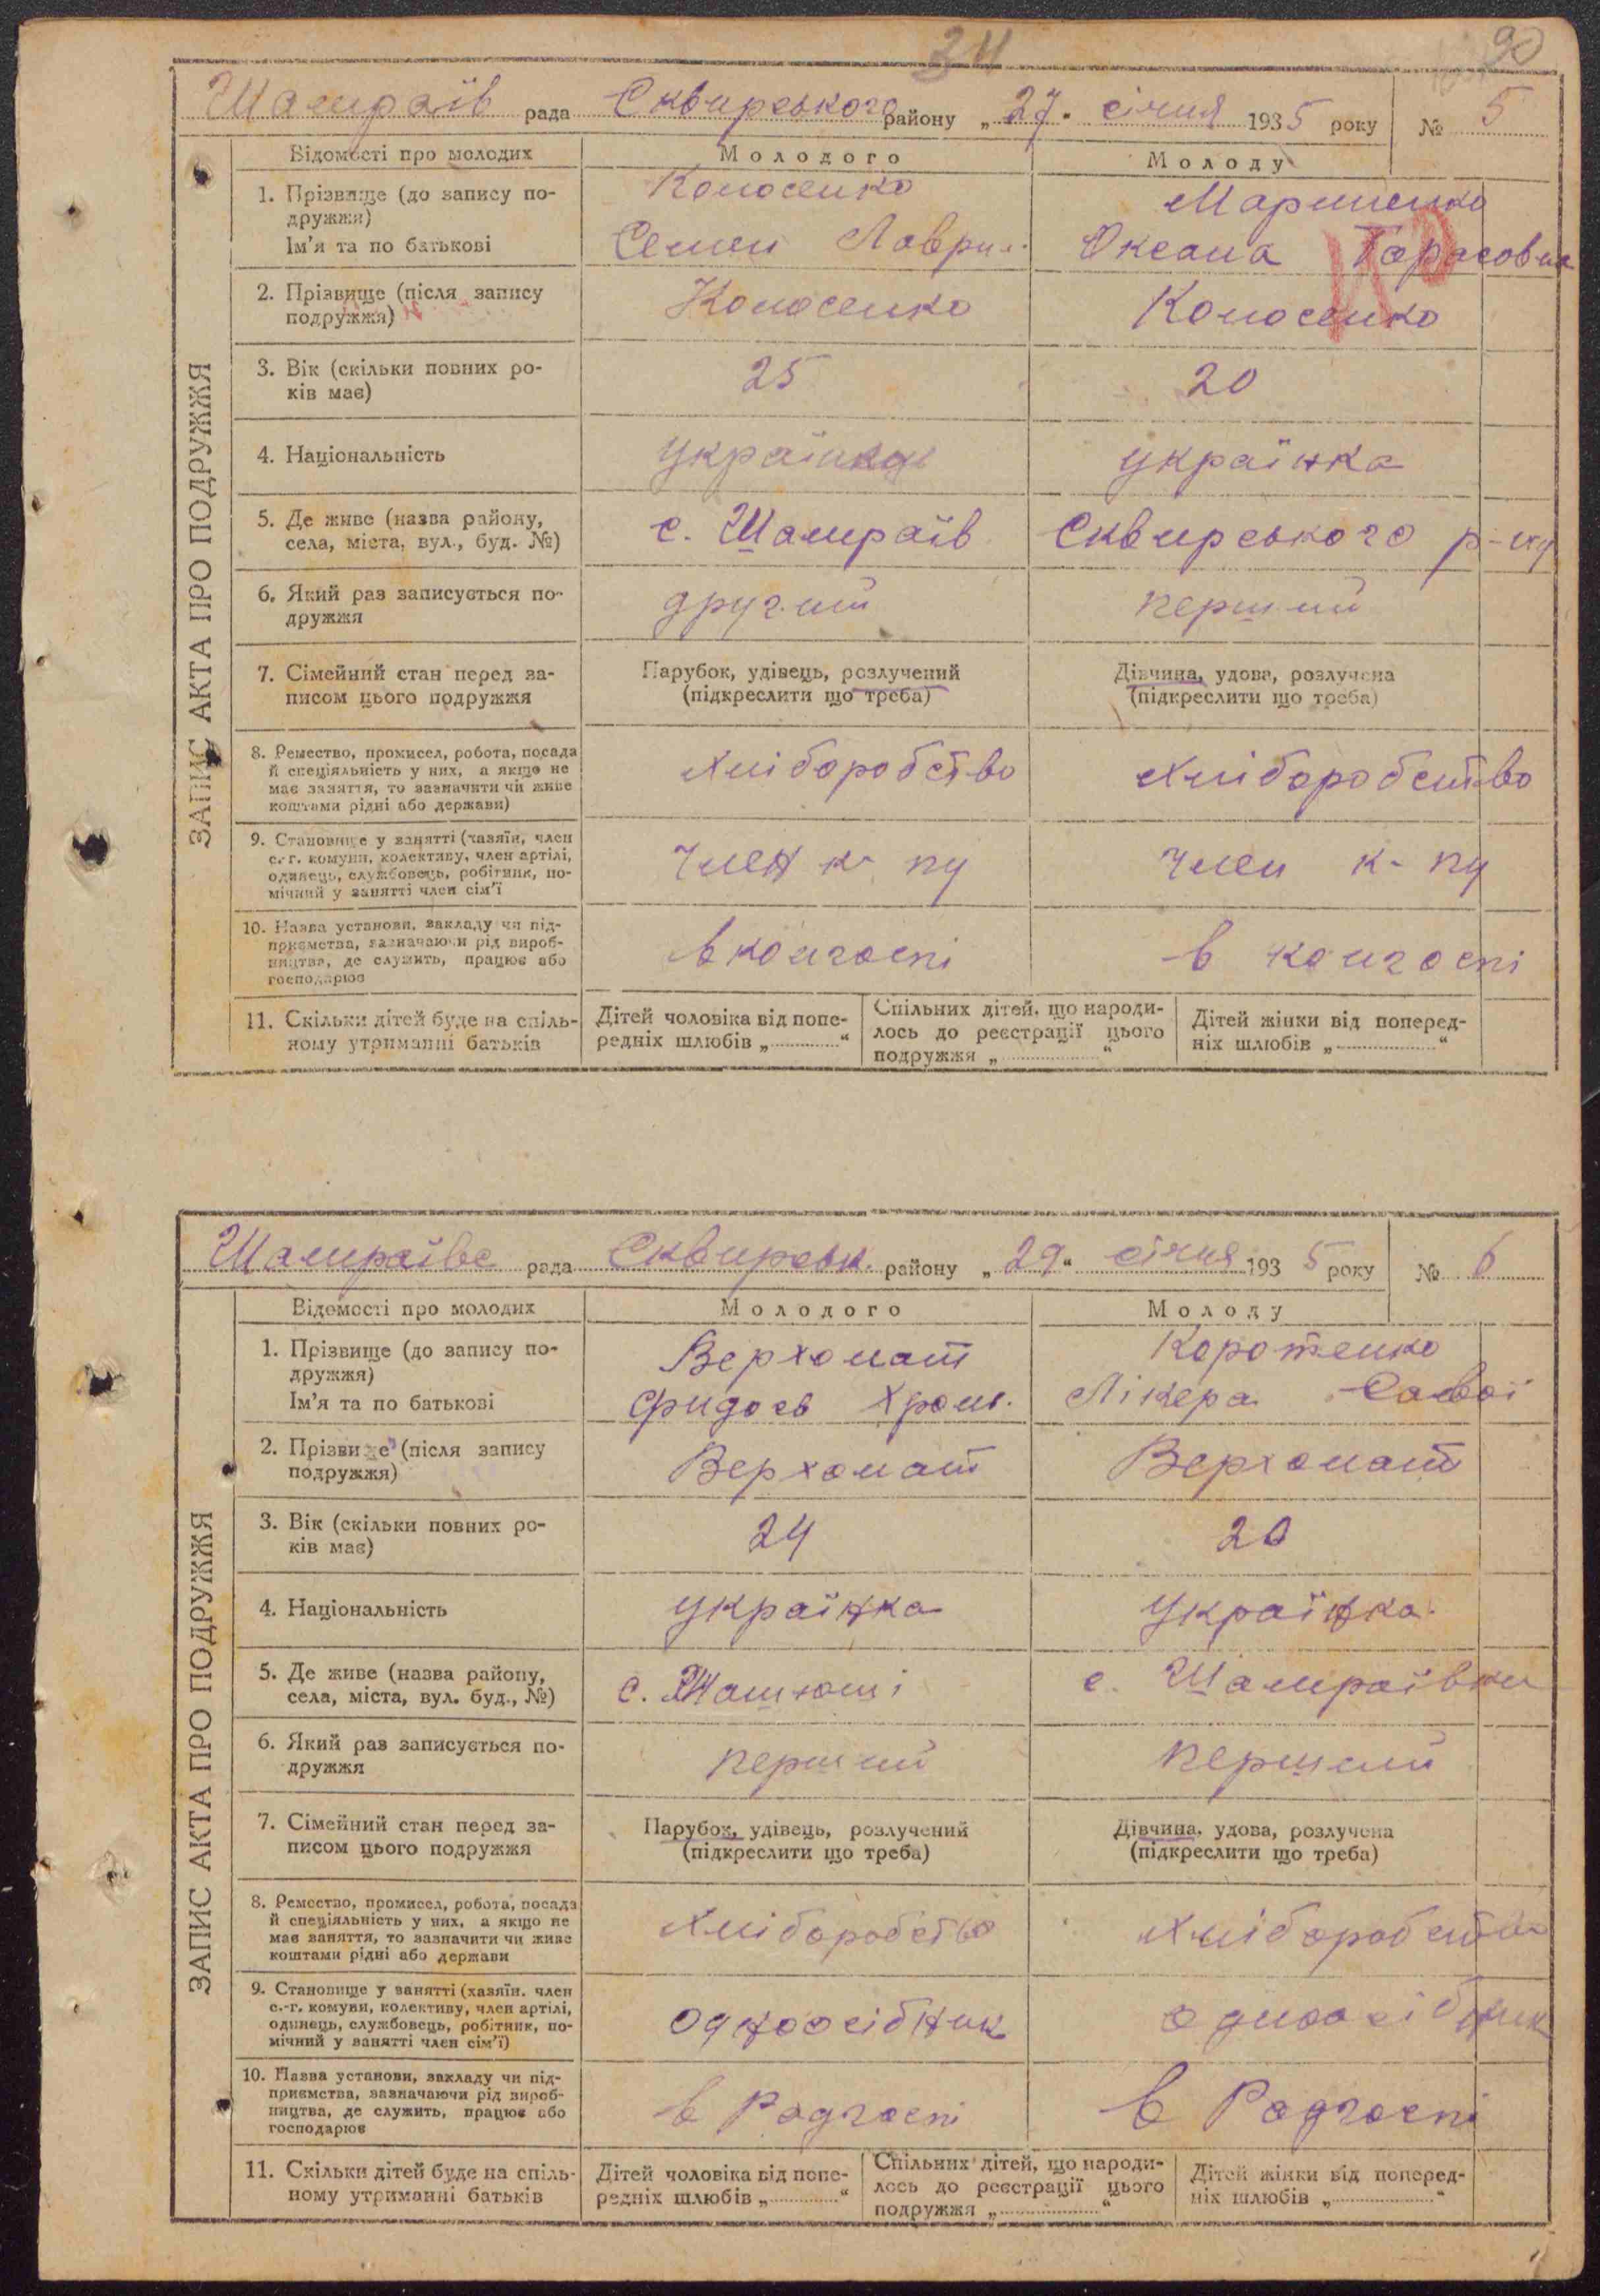 34
90
Шамраїв рада Сквирського району „27" січня 1935 року № 5
Відомості про молодих Молодого Молоду
ЗАПИС АКТА ПРО ПОДРУЖЖЯ
1. Прізвище (до запису по-
дружжя)
Колосенко Марименко
Ім'я та по батькові Семен Лаврин. Оксана Тарасовна
2. Прізвище (після запису
подружжя)
Колосенко Колосенко
3. Вік (скільки повних ро-
ків має)
25 20
4. Національність українка українка
5. Де живе (назва району,
села, міста, вул., буд. №)
с. Шамраїв Сквирського р-ну
6. Який раз записується по-
дружжя
другий перший
7. Сімейний стан перед за-
писом цього подружжя
Парубок, удівець, розлучений
(підкреслити що треба)
Дівчина, удова, розлучена
(підкреслити що треба)
8. Ремество, промисел, робота, посада
й спеціяльність у них, а якщо не
має заняття, то зазначити чи живе
коштами рідні або держави)
хліборобство хліборобство
9. Становище у занятті (хазяїн, член
с.-г. комуни, колективу, член артілі,
одинець, службовець, робітник, по-
мічний у занятті член сім'ї
член к-пу член к-пу
10. Назва установи, закладу чи під-
приємства, зазначаючи рід вироб-
ництва, де служить, працює або
господарює
в колгоспі в колгоспі
11. Скільки дітей буде на спіль-
ному утриманні батьків
Дітей чоловіка від попе-
редніх шлюбів „ "
Спільних дітей, що народи-
лось до реєстрації цього
подружжя „ "
Дітей жінки від поперед-
ніх шлюбів „ "
Шамраївс рада Сквирськ. району „29" січня 1935 року № 6
Відомості про молодих Молодого Молоду
ЗАПИС АКТА ПРО ПОДРУЖЖЯ
1. Прізвище (до запису по-
дружжя)
Верхолат Коротенко
Ім'я та по батькові Фидось Хром. Лікера Савої
2. Прізвище (після запису
подружжя)
Верхолат Верхолат
3. Вік (скільки повних ро-
ків має)
24 20
4. Національність українка українка
5. Де живе (назва району,
села, міста, вул. буд., №)
с. с. Шамраївки
6. Який раз записується по-
дружжя
перший перший
7. Сімейний стан перед за-
писом цього подружжя
Парубок, удівець, розлучений
(підкреслити що треба)
Дівчина, удова, розлучена
(підкреслити що треба)
8. Ремество, промисел, робота, посада
й спеціяльність у них, а якщо не
має заняття, то зазначити чи живе
коштами рідні або держави
хліборобство хліборобство
9. Становище у занятті (хазяїн, член
с.-г. комуни, колективу, член артілі,
одинець, службовець, робітник, по-
мічний у занятті член сім'ї)
одноосібник одноосібник
10. Назва установи, закладу чи під-
приємства, зазначаючи рід вироб-
ництва, де служить, працює або
господарює
в Радгоспі в Радгоспі
11. Скільки дітей буде на спіль-
ному утриманні батьків
Дітей чоловіка від попе-
редніх шлюбів „ "
Спільних дітей, що народи-
лось до реєстрації цього
подружжя „ "
Дітей жінки від поперед-
ніх шлюбів „ "